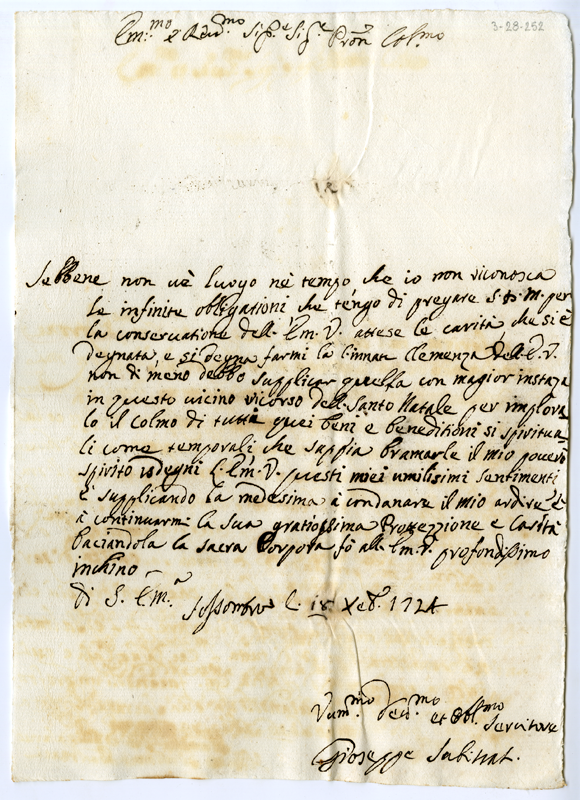 3-28-252
Em.mo e Rev.mo Sig.e Sig.e Pron. Col.mo
Sebbene non u'è luogo nè tempo che io non riconosca
le infinite obligationi che tengo di pregare S. D. M. per
la conservatione dell. Em. V. attese le carità che si è
degnata, e si degna farmi la linnata Clemenza dell. E. V.
non di meno debbo supplicar quella con magior instaza
in questo uicino ricorso dell. Santo Natale per implorar
lo il Colmo di tutti quei beni e beneditioni si spiritua
li come temporali che sappia bramarle il mio povero
spirito isdegni l. Em. V. questi miei umilisimi sentimenti
e supplicando la medesima à condanare il mio ardire è
à continuarmi la sua gratiossima Protezzione e Carità
baciandola la sacra Porpora fò all. Em. V. profondissimo
inchino
di S. Em.a
li 18 Xeb. 1724
Vum.mo Deu.mo et Obl.mo Servitore
Gioseppe Sabinat.